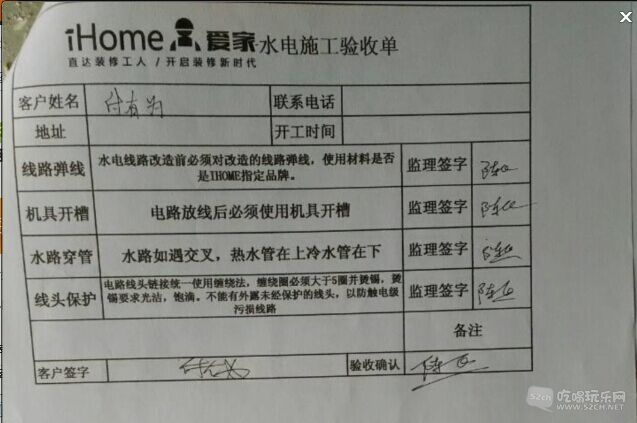 iHome 爱家 水电施工验收单
直达装修工人 / 开启装修新时代
客户姓名 付有为 联系电话
地址 开工时间
线路弹线 水电线路改造前必须对改造的线路弹线，使用材料是否 监理签字
是IHOME指定品牌。
机具开槽 电路放线后必须使用机具开槽 监理签字
水路穿管 水路如遇交叉，热水管在上冷水管在下 监理签字
线头保护 电路线头链接统一使用缠绕法，缠绕圈必须大于5圈并烫锡，烫 监理签字
锡要求光沽，饱滴。不能有外露未经保护的线头，以防触电级
污损线路
备注
客户签字 验收确认
吃喝玩乐网
WWW.52CH.NET